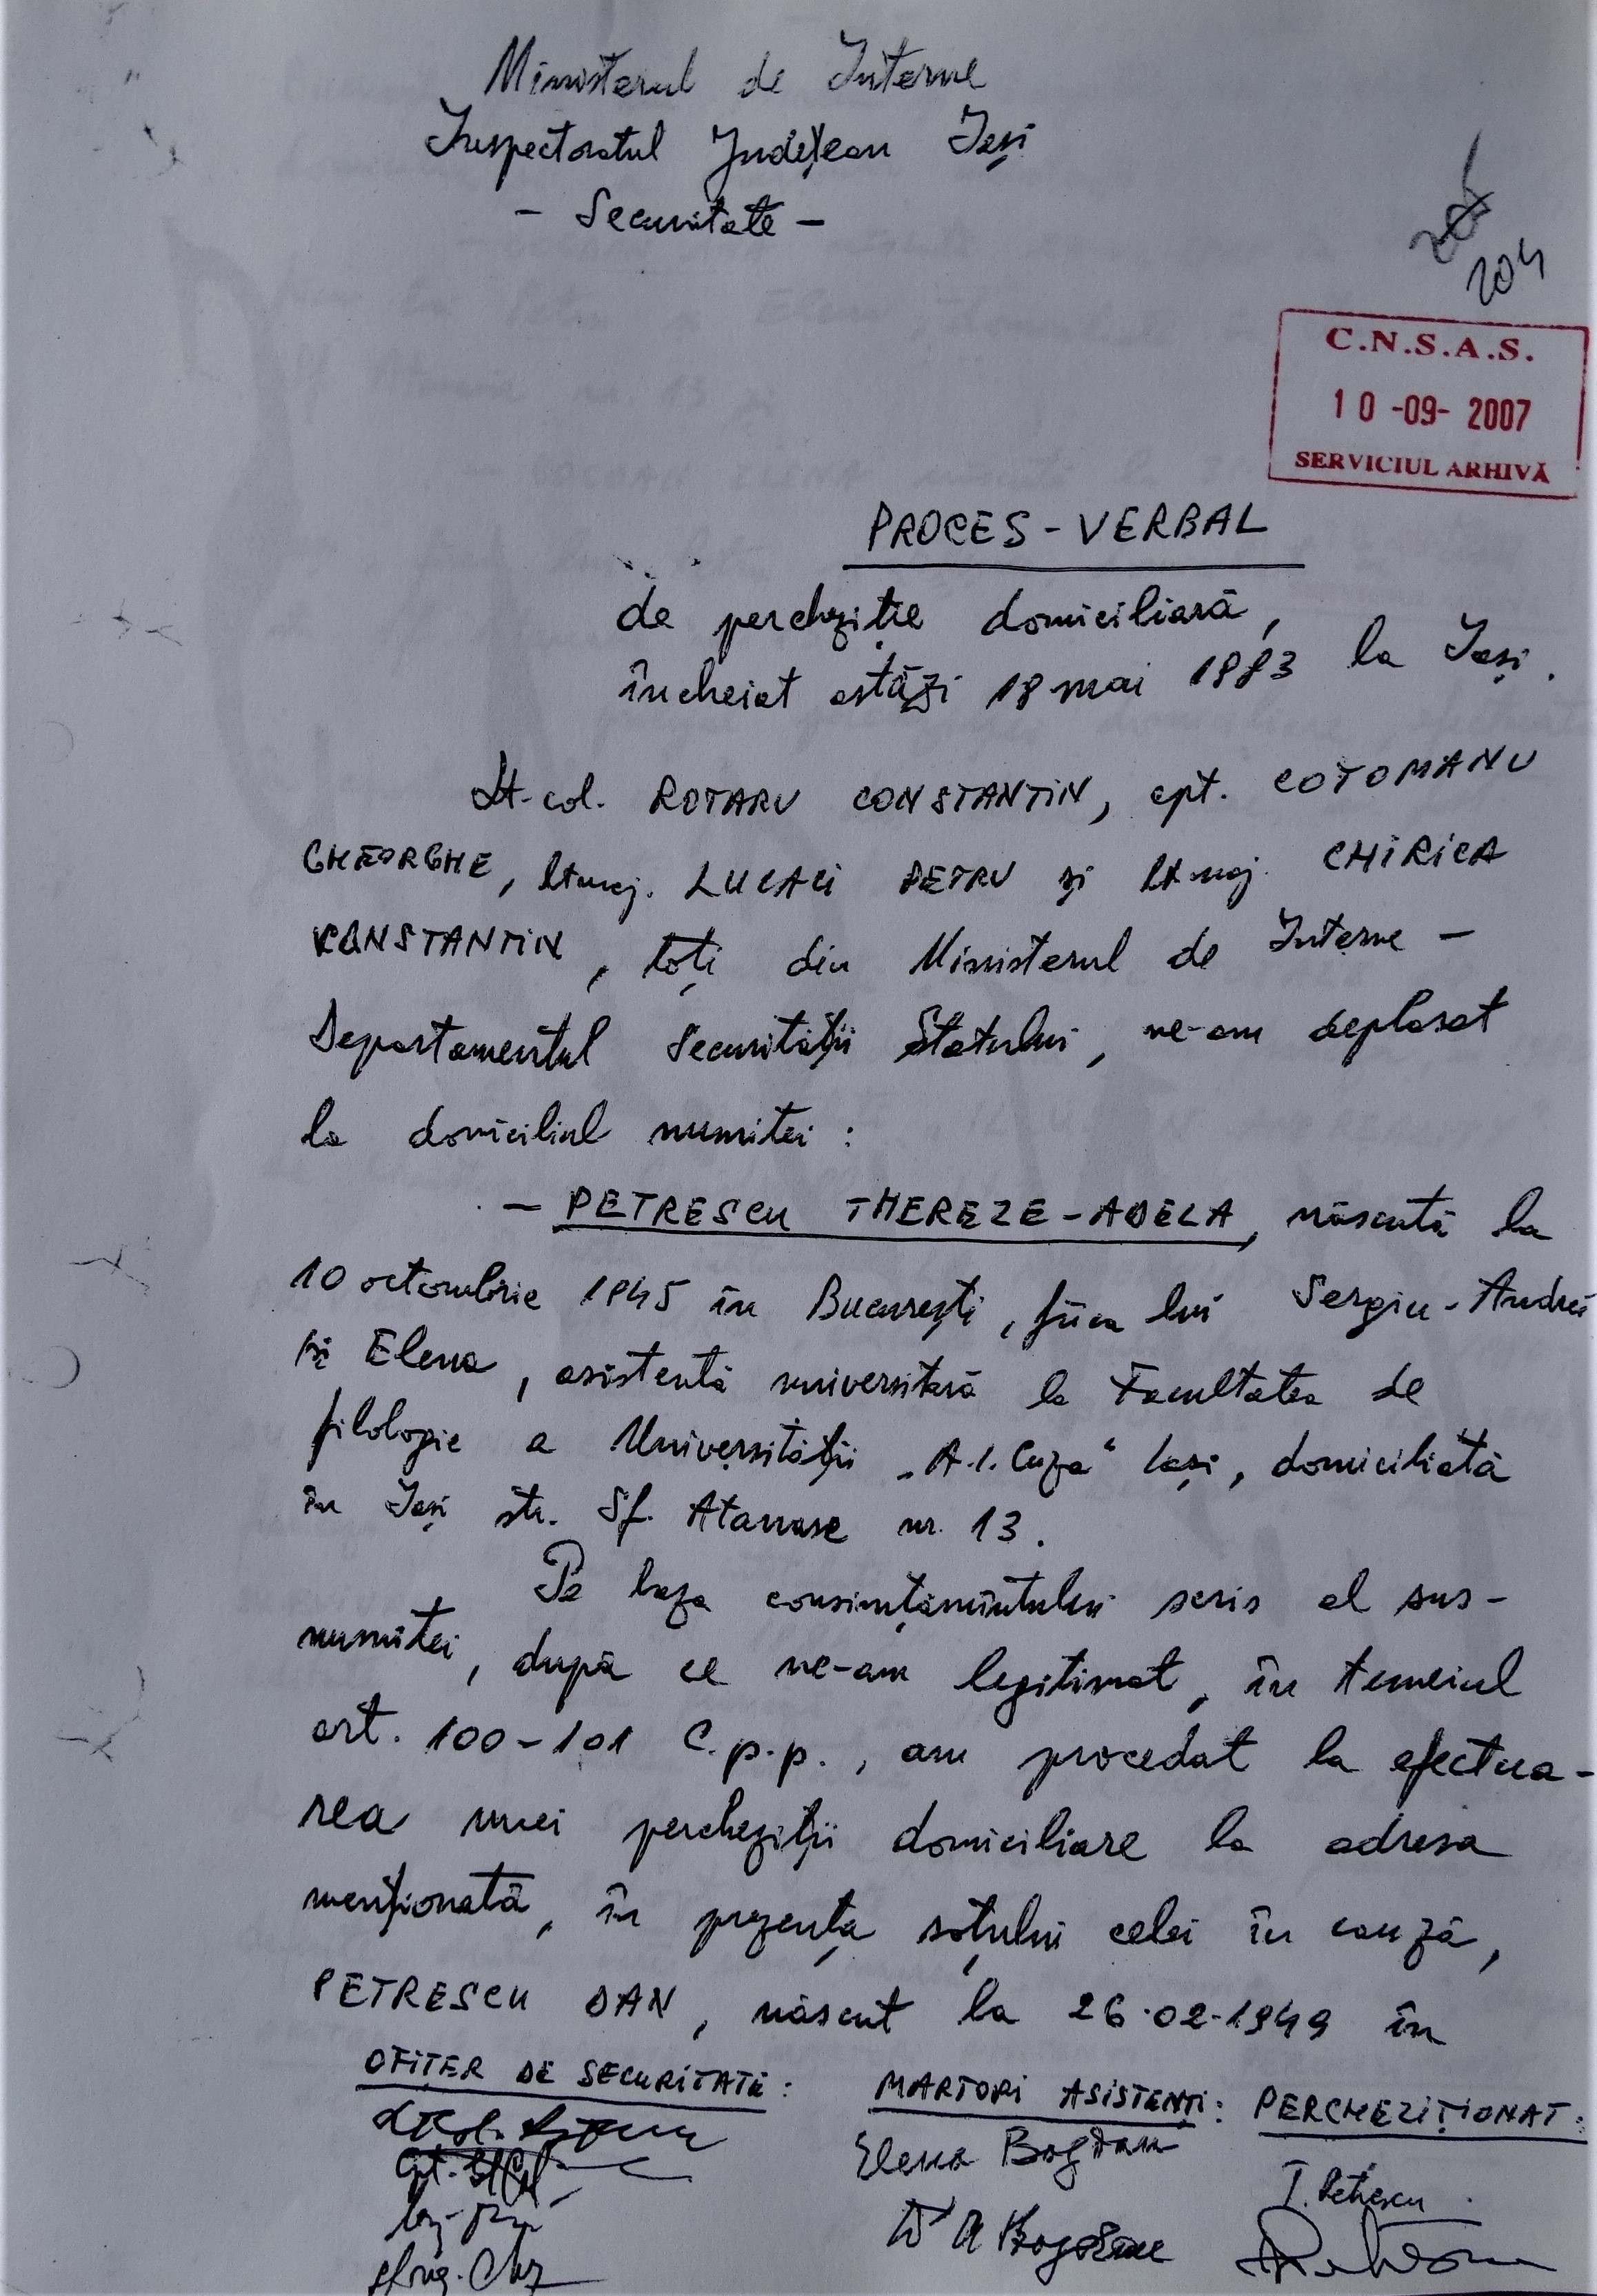 Ministerul de Interne
Inspectoratul Județean Iași
- Securitate -
204
C.N.S.A.S.
10 -09- 2007
SERVICIUL ARHIVĂ
PROCES-VERBAL
de percheziție domiciliară,
încheiat astăzi 18 mai 1983 la Iași.
Lt-col. ROTARU CONSTANTIN, cpt. COTOMANU
GHEORGHE, lt.maj. LUCACI PETRU și lt.maj. CHIRICA
CONSTANTIN, toți din Ministerul de Interne -
Departamentul Securității Statului, ne-am deplasat
la domiciliul numitei :
- PETRESCU THEREZE-ADELA, născută la
10 octombrie 1945 în București, fiica lui Sergiu-Andrei
și Elena, asistentă universitară la Facultatea de
filologie a Universității „A.I. Cuza" Iași, domiciliată
în Iași str. Sf. Atanase nr. 13.
Pe baza consimțămîntului scris al sus-
numitei, după ce ne-am legitimat, în temeiul
art. 100-101 C.p.p., am procedat la efectua-
rea unei percheziții domiciliare la adresa
menționată, în prezența soțului celei în cauză,
PETRESCU DAN, născut la 26.02.1949 în
OFIȚER DE SECURITATE :
MARTORI ASISTENȚI : PERCHEZIȚIONAT :
Elena Bogdan
T. Petrescu
Bogdan